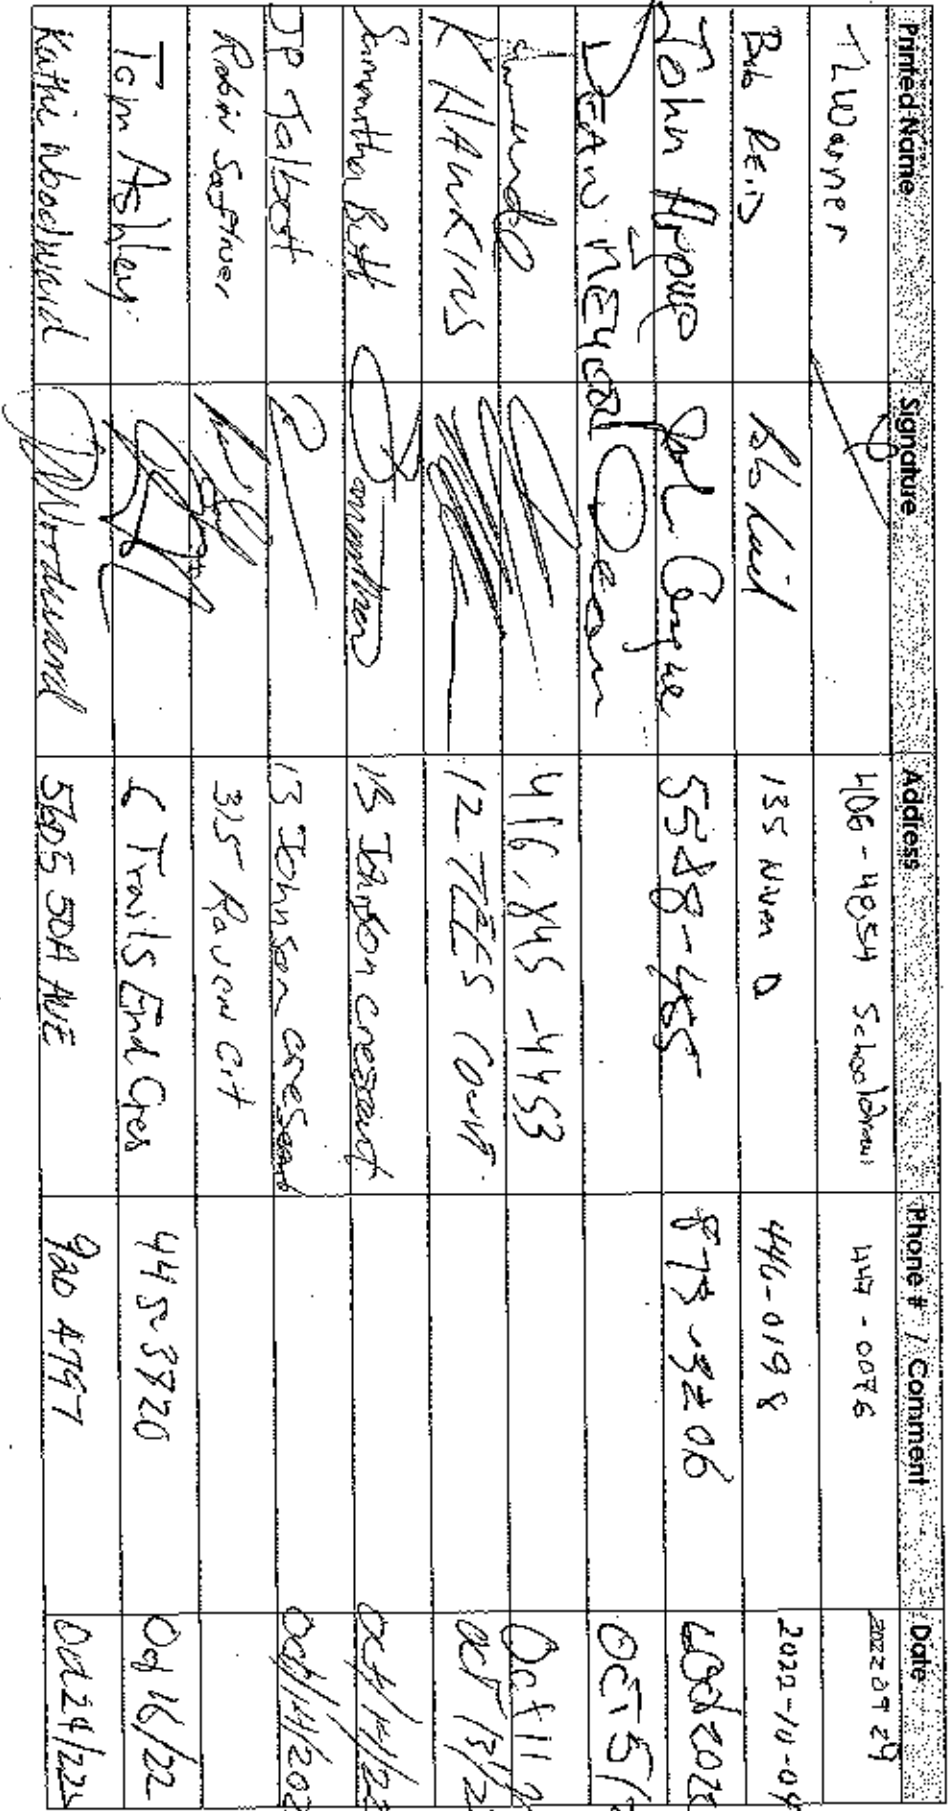 Printed Name Signature Address Phone # / Comment Date
T Warner 406-4854 School 447-0076 2022 09 29
Bob REID Bob Reid 135 Niven D 446-0198 2022-10-04
John Argue John Argue 5588-485 873-3206 Oct 2022
DEAN MEYCOU Dean OCT 5/
416.845-4453 Oct 11
K HAWKINS 12 TEES Court OCT 13/2
Samantha Samantha 13 Johnson crescent Oct/14/22
JP Talbot 13 Johnson crescent Oct/14/202
Robin 325 Raven Crt
Tom Ashley 6 Trails End Cres 445-3820 Oct 16/22
Kathi Woodward Woodward 5605 50A AVE 920 4797 Oct 24/22